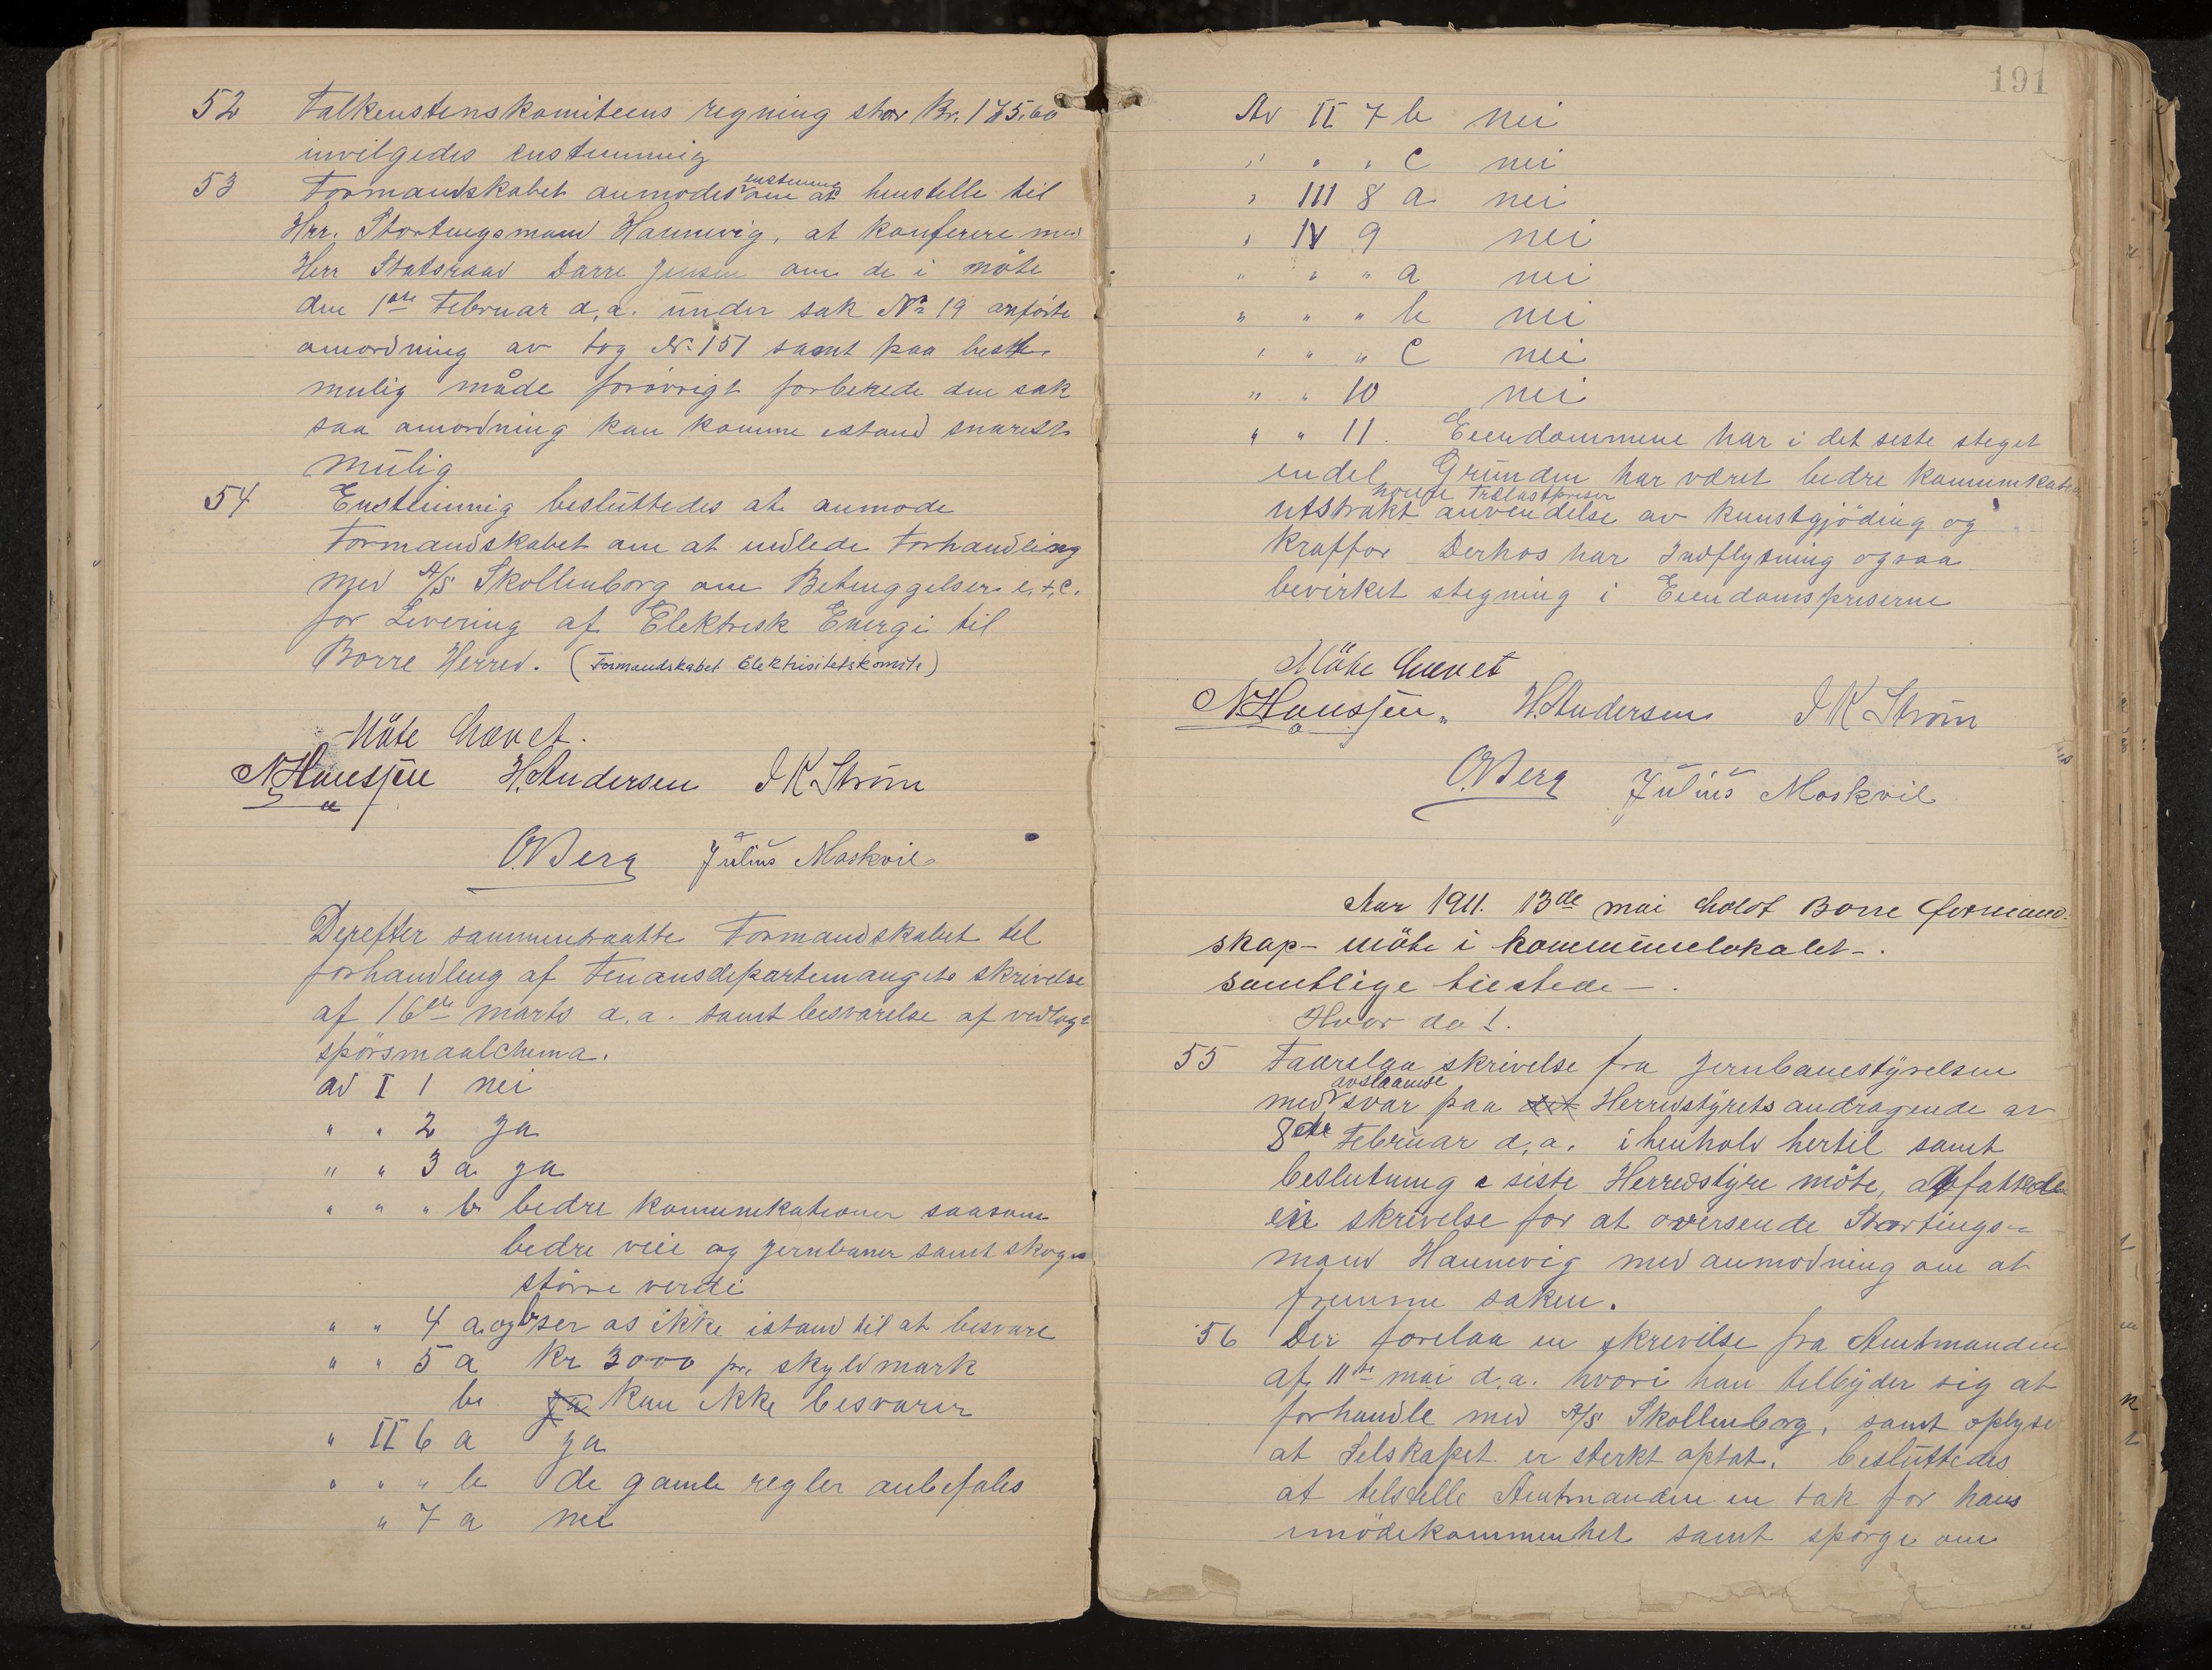 52 Falkenstenskomiteens regning stor Kr. 175,60
invilgedes enstemmig
53 Formandskabet anmodes enstemmig om at henstille til
Hrr. Stortingsmand Hannevig, at konferere med
Herr Statsraad Darre Jensen om de i möte
den 1ste Februar d,a. under sak No 19 anförte
anordning av tog Nr. 151 samt paa beste
mulig måde forövrigt forberede den sak
saa anordning kan komme istand snarest
mulig
54 Enstemmig besluttedes at anmode
Formandskabet om at indlede Forhandling
med A/S Skollenborg om Betinggelser e.t.c.
for Levering af Elektrisk Energi til
Borre Herred. (Formandskabet Elektrisitetskomite)
Möte hævet.
N. Hanssen H. Andersen J K Strøm
O. Berg Julius Moskvil
Derefter sammentraatte Formandskabet til
forhandling af Finansdepartemangets skrivelse
af 16de marts d.a. samt besvarelse af vedlagt
spörsmaalchema.
ad I 1 nei
" " 2 ja
" " 3 a ja
" " " b bedre komunikationer saasom
bedre veie og jernbaner samt skogens
större verdi
" " 4 a og b ser os ikke istand til at besvare
" " 5 a Kr 3000 pr. skyldmark
b ja kan ikke besvares
" II 6 a ja
" " " b de gamle regler anbefales
" 7 a nei
191
Av II 7 b nei
" " " c nei
" III 8 a nei
" IV 9 nei
" " " a nei
" " " b nei
" " " c nei
" " 10 nei
" " 11. Eiendommene har i det siste steget
endel Grunden har været bedre kommunikation
houie Trælastpriser
utstrakt anvendelse av kunstgjöding og
kraffor Derhos har Indflytning ogsaa
bevirket stegning i Eiendomspriserne
Möte hævet
N. Hanssen H. Andersen J K Strøm
O. Berg Julius Moskvil
Aar 1911. 13de mai holdt Borre formand-
skap- möte i kommunelokalet-.
samtlige tilstede-.
Hvor da!.
55 Forelaa skrivelse fra Jernbanestyrelsen
med avslaaende svar paa det Herredstyrets andragende av
8de Februar d,a. i henhold hertil samt
beslutning i siste Herredstyre möte, affattedes
en skrivelse for at oversende Stortings-
mand Hannevig med anmodning om at
fremme saken.
56 Der forelaa en skrevilse fra Amtmanden
af 11te mai d.a. hvori han tilbyder sig at
forhandle med A/S Skollenborg, samt oplyse
at Selskapet er sterkt optat. besluttedes
at tilstille Amtmanden en tak for hans
imödekommenhet samt spörge om